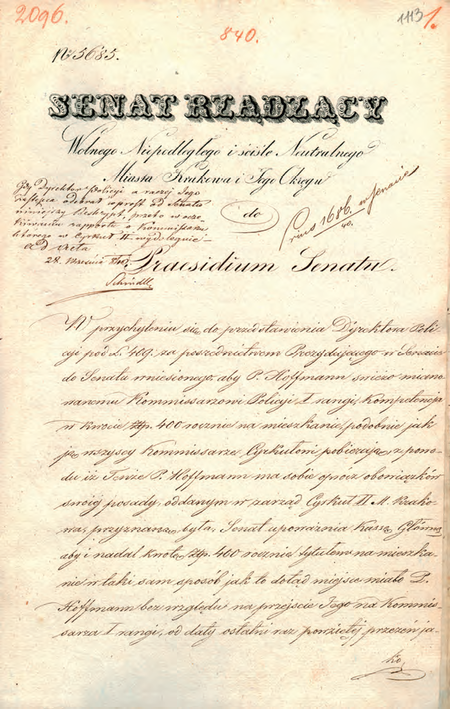 2096.
840.
1113
1.
N 5685.
SENAT RZĄDZĄCY
Wolnego Niepodległego i ściśle Neutralnego
Miasta Krakowa i Jego Okręgu
do
Praesidium Senatu.
Gdy Dyrektor Policyi a raczej Jego
odebrał wprost od Senatu
niniejszy Reskrypt, przeto w
raportu o Kommissarzu
w Cyrkule II
ad acta
28. Września
1686.
40.
W przychyleniu się do przedstawienia Dyrektora Poli-
cyi pod L. 409. za pośrednictwem Prezydującego w Senacie
do Senatu wniesionego, aby P. Hoffmann świeżo miano-
wanemu Kommissarzowi Policyi I rangi, kompetencja
w kwocie Złp. 400 rocznie na mieszkanie, podobnie jak
ją wszyscy Kommissarze Cyrkułowi pobierają, z powo-
du iż Tenże P. Hoffmann ma sobie oprócz obowiązków
swojej posady, oddanym w zarząd Cyrkuł II M. Krako-
wa, przyznaną była, Senat upoważnia Kassę Główną
aby i nadal kwotę Złp. 400 rocznie tytułem na mieszka-
nie w taki sam sposób jak to dotąd miejsce miało P.
Hoffmann bez względu na przejście Jego na Kommis-
sarza I rangi, od daty ostatni raz powziętej przezeń ja-
ko